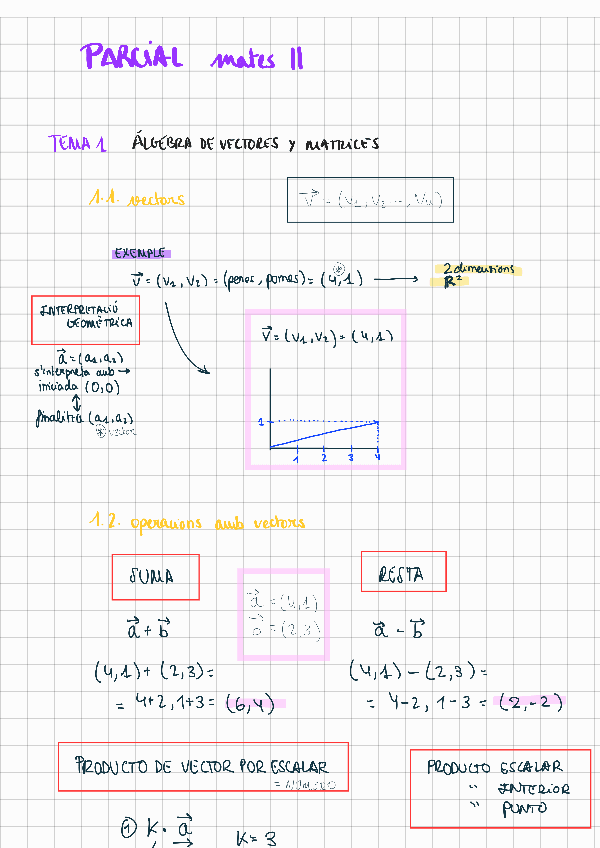 PARCIAL mates II
TEMA 1 ÁLGEBRA DE VECTORES Y MATRICES
1.1. vectors
v = (v1, v2 ..., vn)
EXEMPLE
v = (v1, v2) = (peres, pomes) = (4,1) → 2 dimensions
R²
INTERPRETACIÓ
GEOMÈTRICA
a = (a1, a2)
s'interpreta amb →
iniciada (0,0)
↕
finalitza (a1, a2)
vector
v = (v1, v2) = (4,1)
1
1 2 3 4
1.2. operacions amb vectors
SUMA
a + b
(4,1) + (2,3) =
= 4+2, 1+3 = (6,4)
a = (4,1)
b = (2,3)
RESTA
a - b
(4,1) - (2,3) =
= 4-2, 1-3 = (2,-2)
PRODUCTO DE VECTOR POR ESCALAR
= NÚMERO
PRODUCTO ESCALAR
" INTERIOR
" PUNTO
① K · a
K = 3